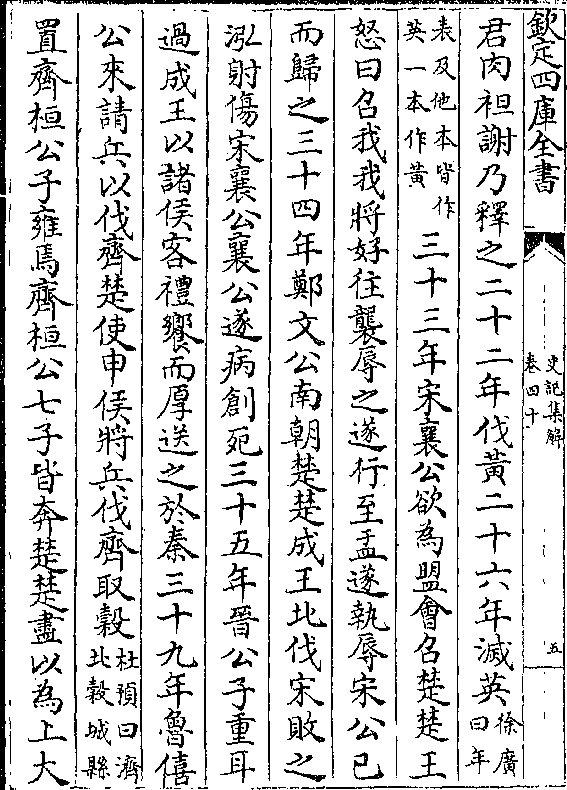 欽定四庫全書
史記集解
卷四十
五
君肉袒謝乃釋之二十二年伐黃二十六年滅英徐廣曰年
表及他本皆作英一本作黃三十三年宋襄公欲為盟會召楚楚王
怒曰召我我將好往襲辱之遂行至盂遂執辱宋公已
而歸之三十四年鄭文公南朝楚楚成王北伐宋敗之
泓射傷宋襄公襄公遂病創死三十五年晉公子重耳
過成王以諸侯客禮饗而厚送之於秦三十九年魯僖
公來請兵以伐齊楚使申侯將兵伐齊取穀杜預曰濟北穀城縣
置齊桓公子雍焉齊桓公七子皆奔楚楚盡以為上大